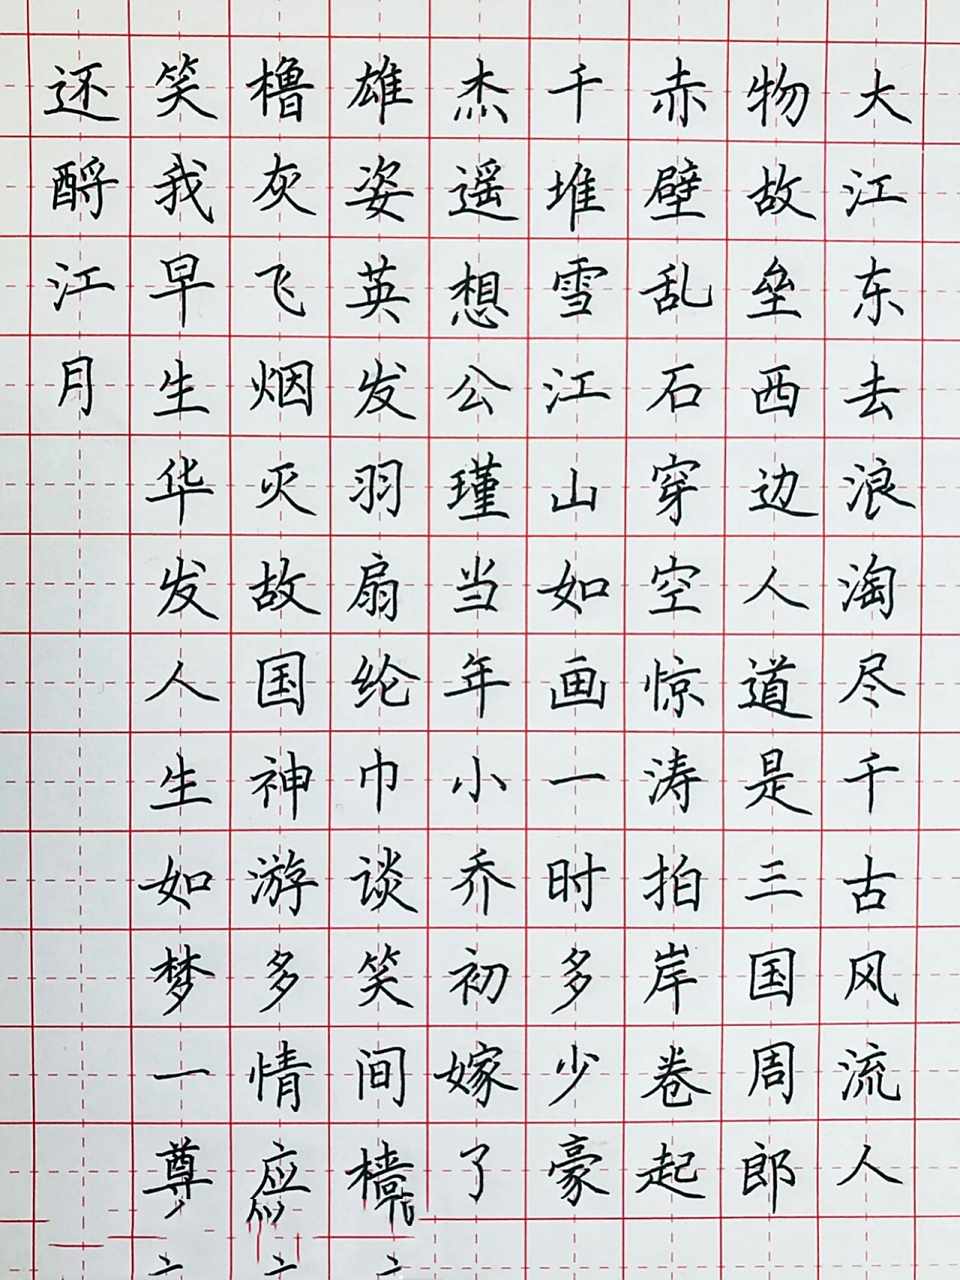 大江东去浪淘尽千古风流人
物故垒西边人道是三国周郎
赤壁乱石穿空惊涛拍岸卷起
千堆雪江山如画一时多少豪
杰遥想公瑾当年小乔初嫁了
雄姿英发羽扇纶巾谈笑间樯
橹灰飞烟灭故国神游多情应
笑我早生华发人生如梦一尊
还酹江月